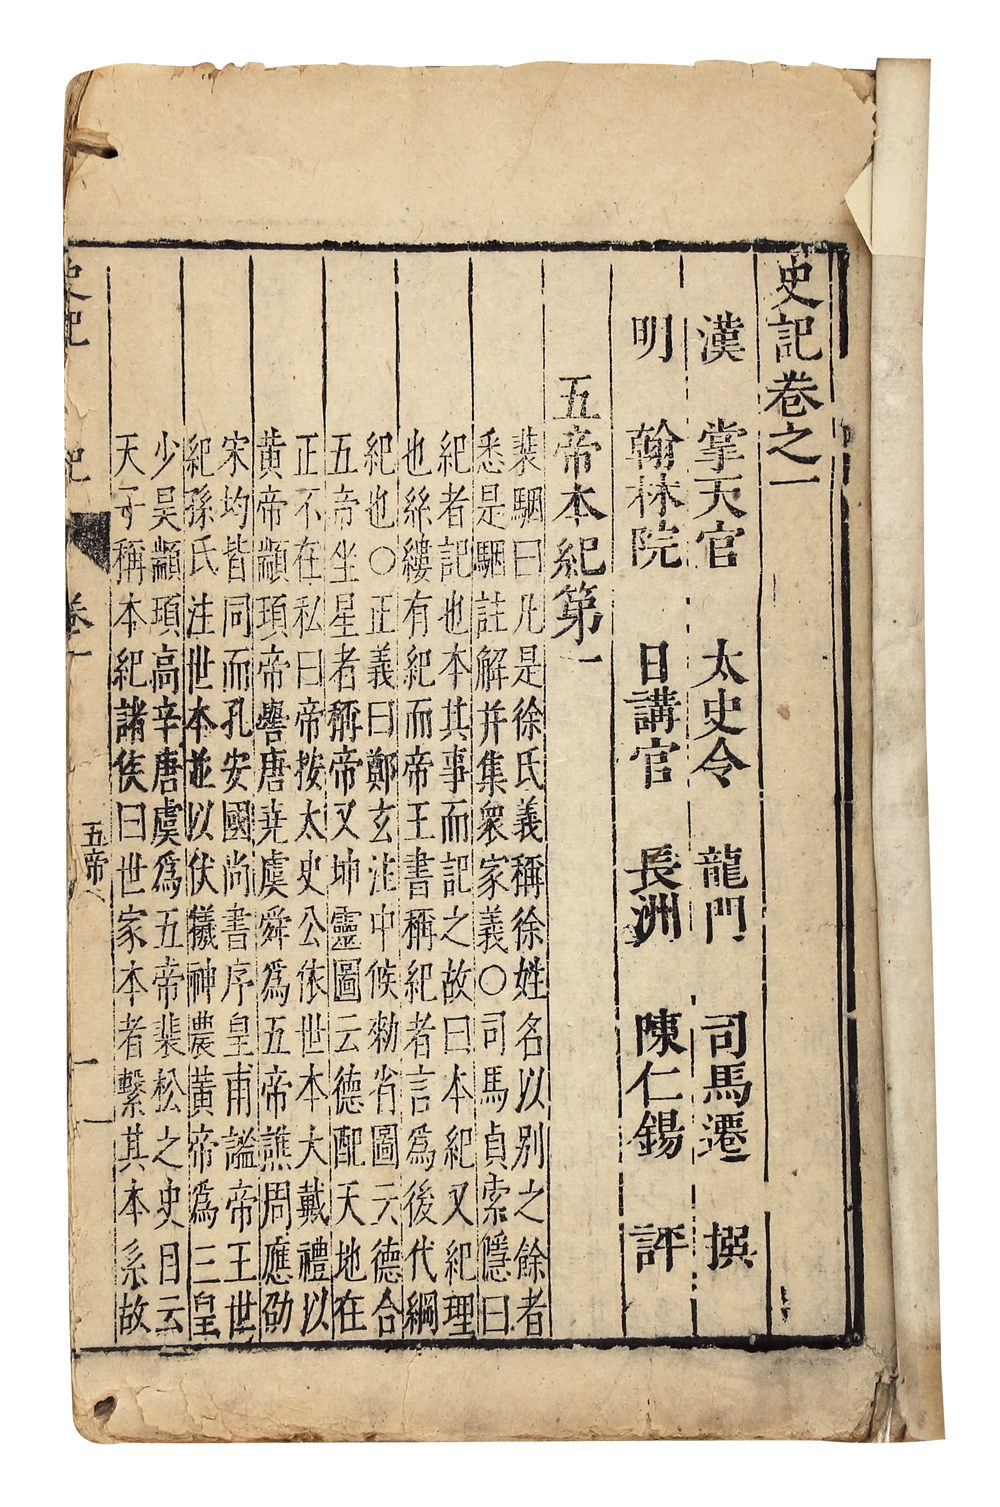 史記卷之一
漢 掌天官 太史令 龍門 司馬遷 撰
明 翰林院 日講官 長洲 陳仁錫 評
五帝本紀第一
裴駰曰凡是徐氏義稱徐姓名以别之餘者
悉是駰註解并集衆家義○司馬貞索隱曰
紀者記也本其事而記之故曰本紀又紀理
也絲縷有紀而帝王書稱紀者言爲後代綱
紀也○正義曰鄭玄注中候勑省圖云德合
五帝坐星者稱帝又坤靈圖云德配天地在
正不在私曰帝按太史公依世本大戴禮以
黄帝顓頊帝嚳唐尭虞舜爲五帝譙周應劭
宋均皆同而孔安國尚書序皇甫謐帝王世
紀孫氏注世本並以伏犧神農黄帝爲三皇
少昊顓頊高辛唐虞爲五帝裴松之史目云
天子稱本紀諸侯曰世家本者繫其本系故
史記 紀 卷一 五帝 一